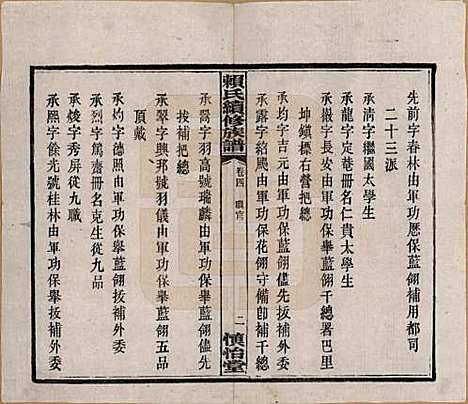 先前字春林由軍功歷保藍翎補用都司
二十三派
承清字繼國太學生
承龍字定菴冊名仁貴太學生
承嚴字長安由軍功保舉藍翎千總署巴里
坤鎮標右營把總
承均字吉元由軍功保藍翎儘先拔補千總
承露字紹熙由軍功保花翎守備卽補千總
賴氏續修族譜
卷四
職官
二
慎怡堂
承霱字羽高號瑞麟由軍功保舉藍翎儘先
拔補把總
承翠字興邦號羽儀由軍功保舉藍翎五品
頂戴
承灼字德照由軍功保舉藍翎拔補外委
承焱字篤齋冊名克生從九品
承焌字秀屏從九職
承熙字餘光號桂林由軍功保舉拔補外委